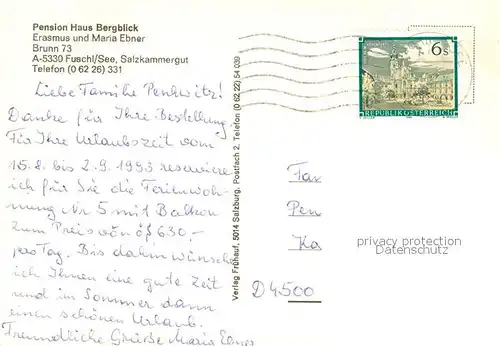 Pension Haus Bergblick
Erasmus und Maria Ebner
Brunn 73
A-5330 Fuschl/See, Salzkammergut
Telefon (0 62 26) 331
Liebe Familie Penkwitz!
Danke für Ihre Bestellung.
Für Ihre Urlaubszeit vom
15.8. bis 2.9.1993 reserviere
ich für Sie die Ferienwoh-
nung Nr 5 mit Balkon
zum Preis von öS 630,-
pro Tag. Bis dahin wünsche
ich Ihnen eine gute Zeit
und im Sommer dann
einen schönen Urlaub.
Freundliche Grüße Maria Ebner
Verlag Frühauf, 5014 Salzburg, Postfach 2, Telefon (0 62 22) 54 0 39
6 S
REPUBLIK ÖSTERREICH
Fam
Pen
Ka
privacy protection
DATENSCHUTZ
D4500